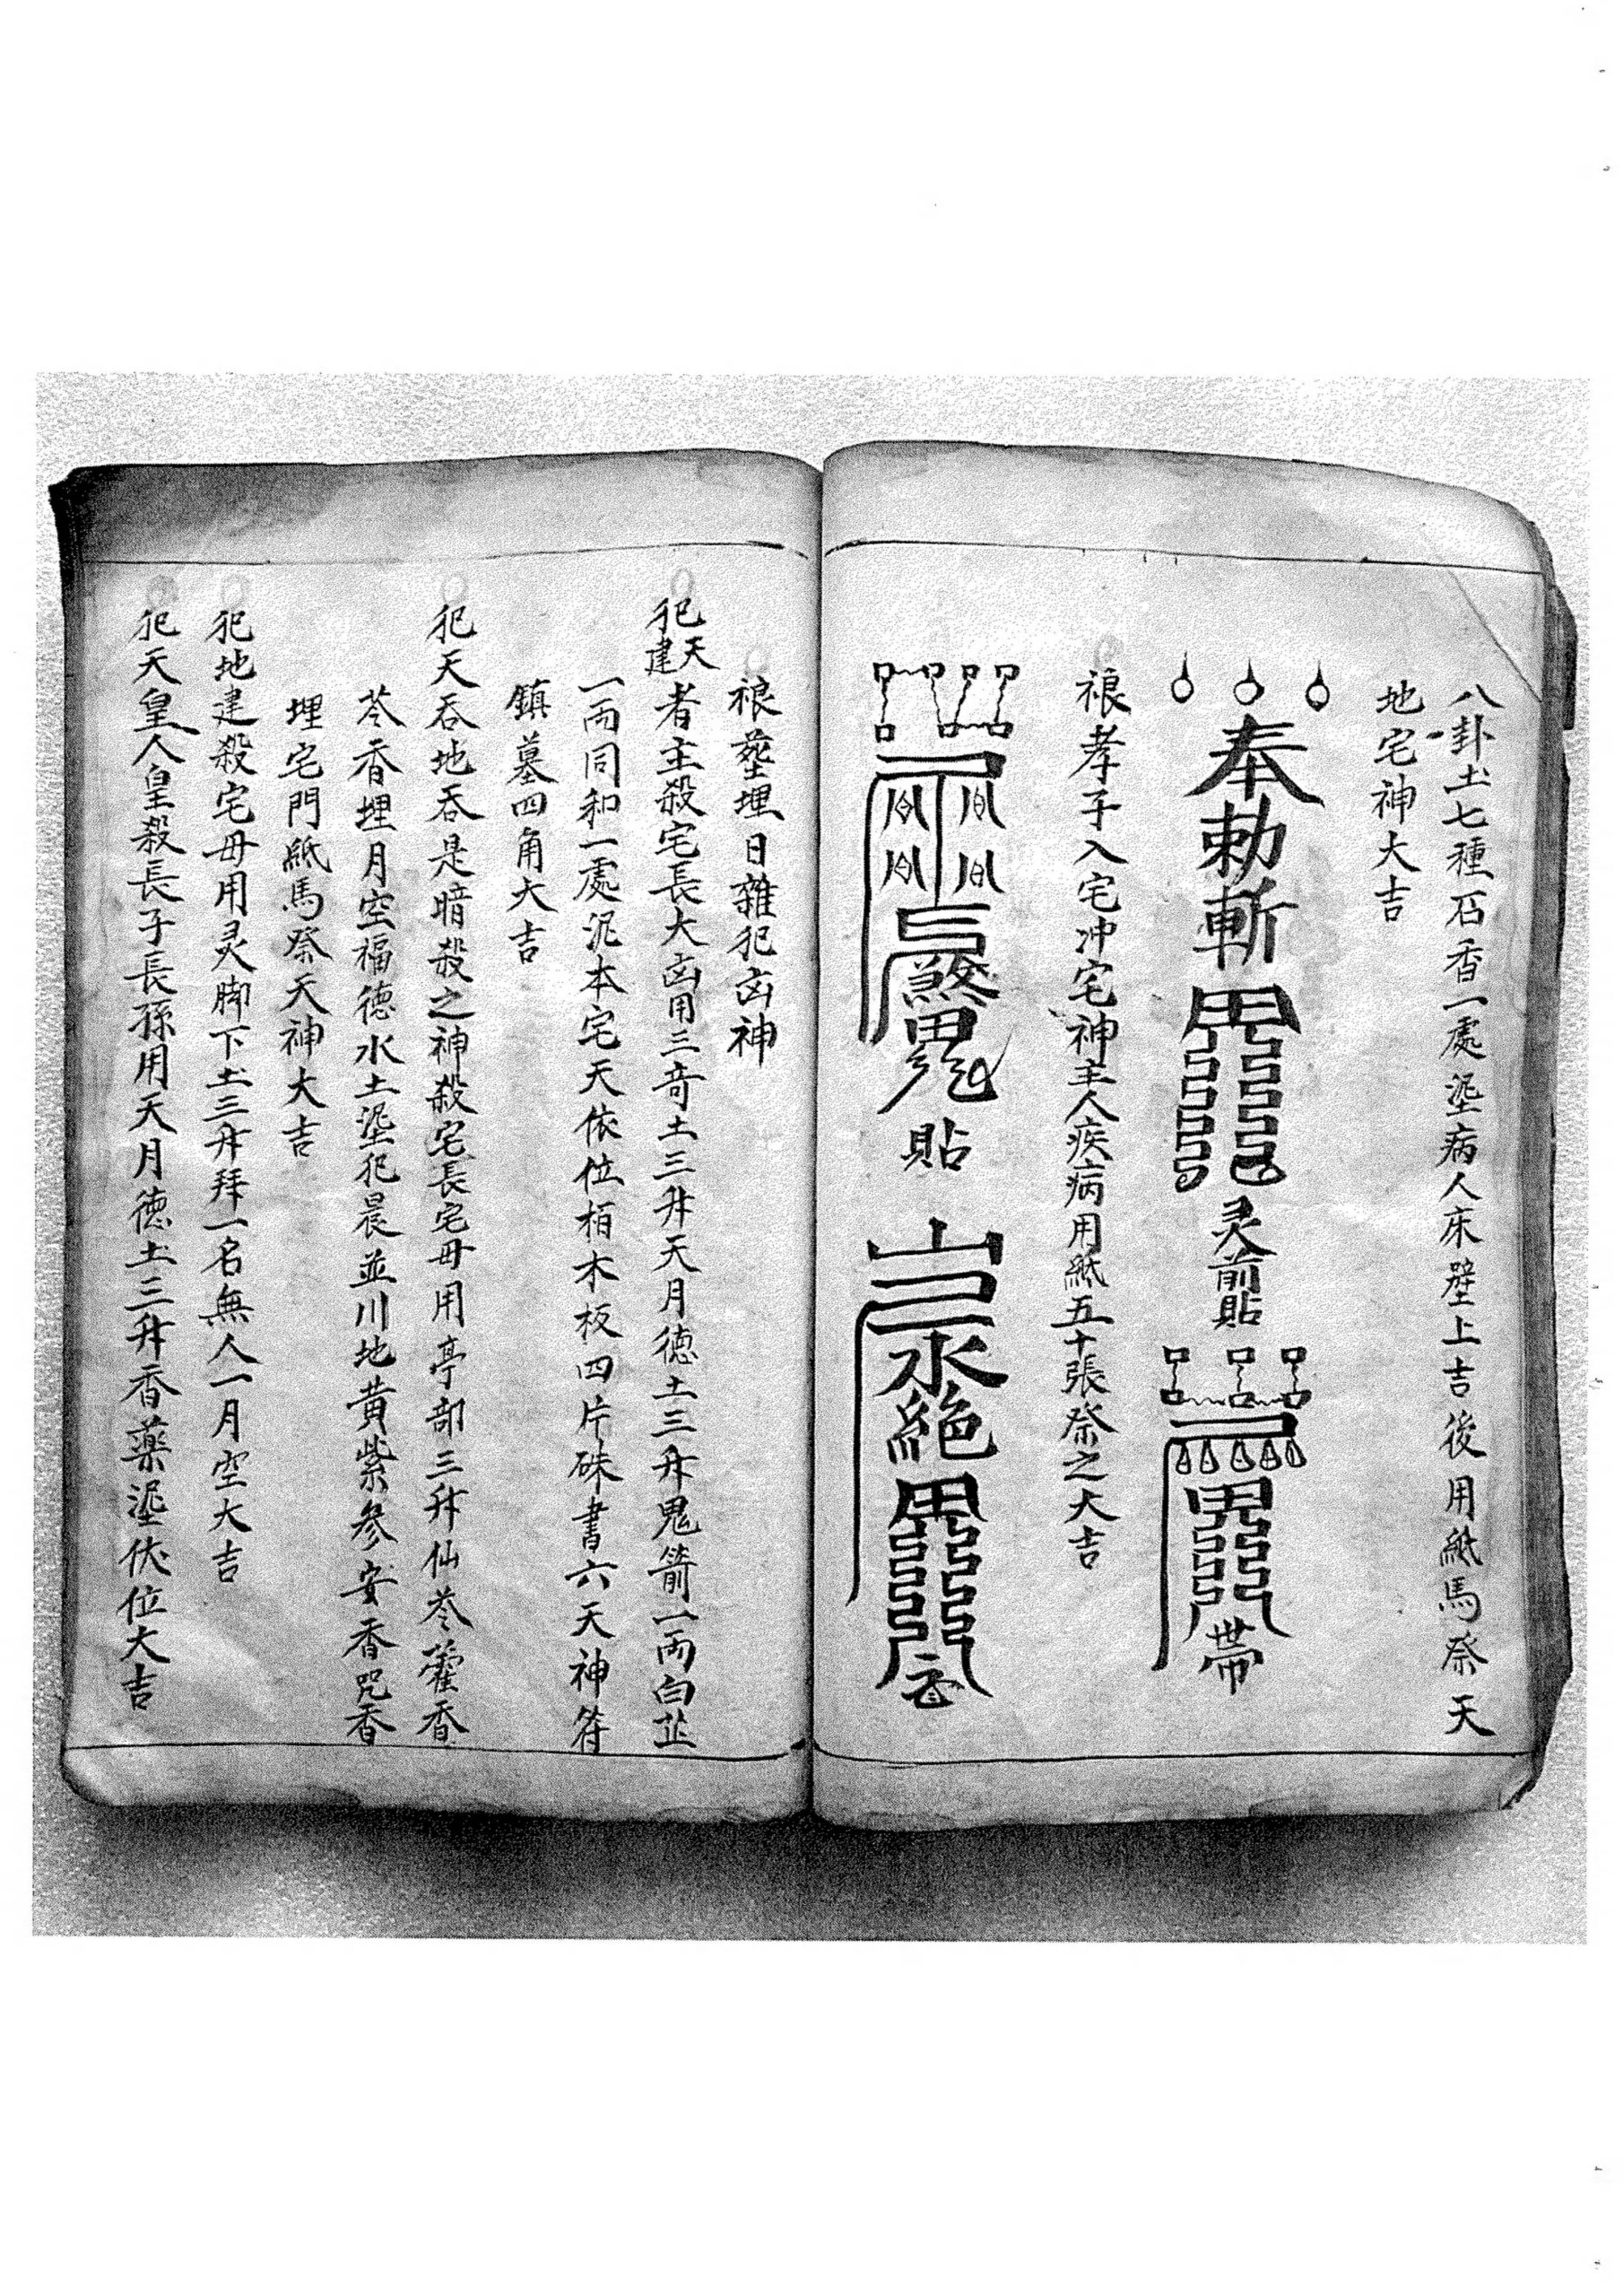 八卦土七種石香一處塗病人床壁上吉後用紙馬祭天
地宅神大吉
奉勅斬 灵前貼 帶
禳孝子入宅冲宅神主人疾病用紙五十張祭之大吉
貼
山 水絶
禳塟埋日雜犯凶神
犯天建者主殺宅長大凶用三竒土三升天月德土三升鬼箭一両白芷
一両同和一處泥本宅天依位栢木板四片硃書六天神符
鎮墓四角大吉
犯天吞地吞是暗殺之神殺宅長宅母用亭部三升仙苓藿香
苓香埋月空福德水土塗犯晨並川地黄紫參安香咒香
埋宅門紙馬祭天神大吉
犯地建殺宅母用灵脚下土三升拜一名無人一月空大吉
犯天皇人皇殺長子長孫用天月德土三升香藥塗伏位大吉